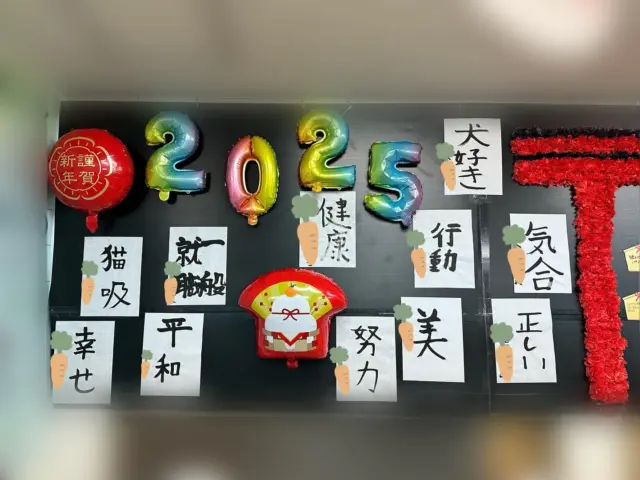 謹賀
新年
2025
犬好き
健康
行動
気合
猫吸
一般
就職
幸せ
平和
努力
美
正しい